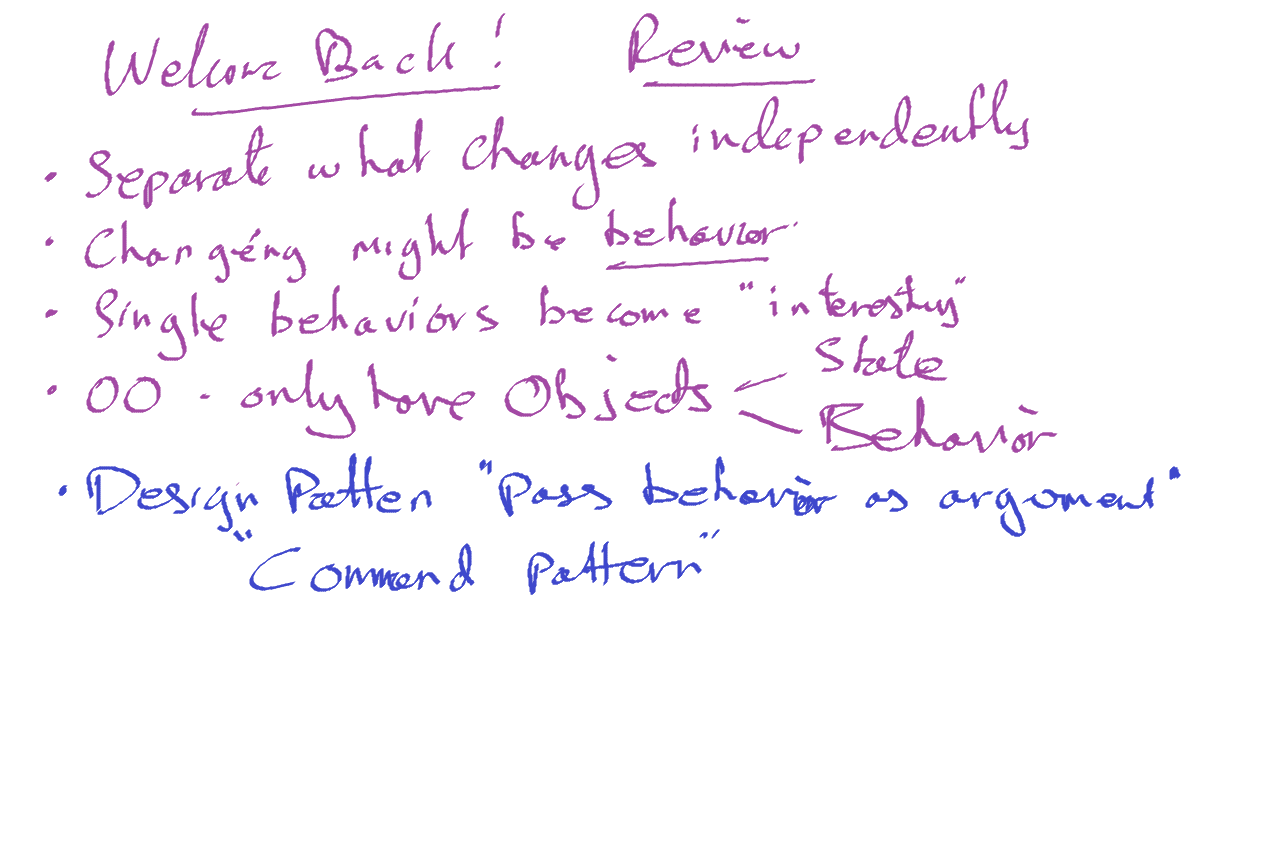 Welcome Back! Review
• Separate what changes independently
• Changing might be behavior
• Single behaviors become "interesting"
• OO - only have Objects < State
Behavior
• Design Patten "Pass behavior as argoment"
"Command Pattern"